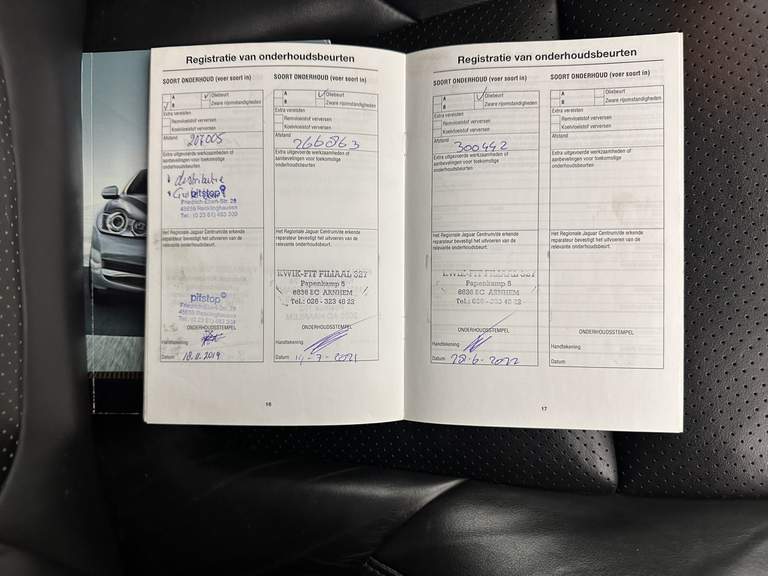 Registratie van onderhoudsbeurten
SOORT ONDERHOUD (voer soort in)
A
Oliebeurt
B
Zware rijomstandigheden
Extra vereisten
Remvloeistof verversen
Koelvloeistof verversen
Afstand
Extra uitgevoerde werkzaamheden of
aanbevelingen voor toekomstige
onderhoudsbeurten
distributie
pitstop
Friedrich-Ebert-Str. 28
45659 Recklinghausen
Het Regionale Jaguar Centrum/de erkende
reparateur bevestigt het uitvoeren van de
relevante onderhoudsbeurt.
pitstop
ONDERHOUDSSTEMPEL
Handtekening
Datum 18.11.2019
SOORT ONDERHOUD (voer soort in)
A
Oliebeurt
B
Zware rijomstandigheden
Extra vereisten
Remvloeistof verversen
Koelvloeistof verversen
Afstand
266863
Extra uitgevoerde werkzaamheden of
aanbevelingen voor toekomstige
onderhoudsbeurten
Het Regionale Jaguar Centrum/de erkende
reparateur bevestigt het uitvoeren van de
relevante onderhoudsbeurt.
KWIK-FIT FILIAAL 327
Papenkamp 5
6836 EC ARNHEM
Tel.: 026 - 323 48 22
ONDERHOUDSSTEMPEL
Handtekening
Datum 14-7-2021
16
Registratie van onderhoudsbeurten
SOORT ONDERHOUD (voer soort in)
A
Oliebeurt
B
Zware rijomstandigheden
Extra vereisten
Remvloeistof verversen
Koelvloeistof verversen
Afstand
300442
Extra uitgevoerde werkzaamheden of
aanbevelingen voor toekomstige
onderhoudsbeurten
Het Regionale Jaguar Centrum/de erkende
reparateur bevestigt het uitvoeren van de
relevante onderhoudsbeurt.
KWIK-FIT FILIAAL 327
Papenkamp 5
6836 EC ARNHEM
Tel.: 026 - 323 48 22
ONDERHOUDSSTEMPEL
Handtekening
Datum 28-6-2022
SOORT ONDERHOUD (voer soort in)
A
Oliebeurt
B
Zware rijomstandigheden
Extra vereisten
Remvloeistof verversen
Koelvloeistof verversen
Afstand
Extra uitgevoerde werkzaamheden of
aanbevelingen voor toekomstige
onderhoudsbeurten
Het Regionale Jaguar Centrum/de erkende
reparateur bevestigt het uitvoeren van de
relevante onderhoudsbeurt.
ONDERHOUDSSTEMPEL
Handtekening
Datum
17